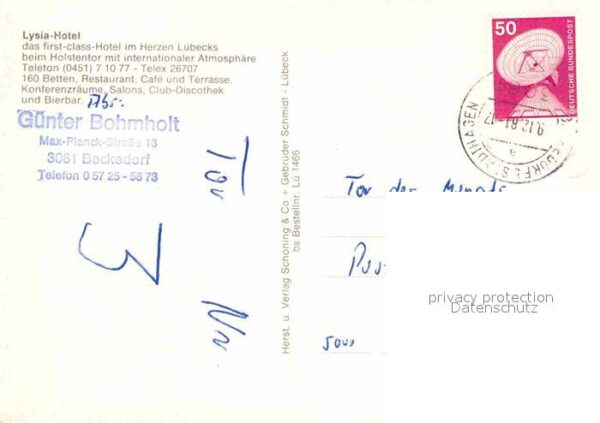 Lysia-Hotel
das first-class-Hotel im Herzen Lübecks
beim Holstentor mit internationaler Atmosphäre
Telefon (0451) 7 10 77 - Telex 26707
160 Betten, Restaurant, Café und Terrasse,
Konferenzräume, Salons, Club-Discothek
und Bierbar.
Absr.
Günter Bohmholt
Max-Planck-Straße 13
3061 Beckedorf
Telefon 0 57 25 - 58 73
Tor
3
Nr
Herst. u. Verlag Schöning & Co + Gebrüder Schmidt - Lübeck
bs Bestellnr. Lü 1466
50
DEUTSCHE BUNDESPOST
9.12.81-17
a
Tor der Monats
Pos
5000
privacy protection
Datenschutz